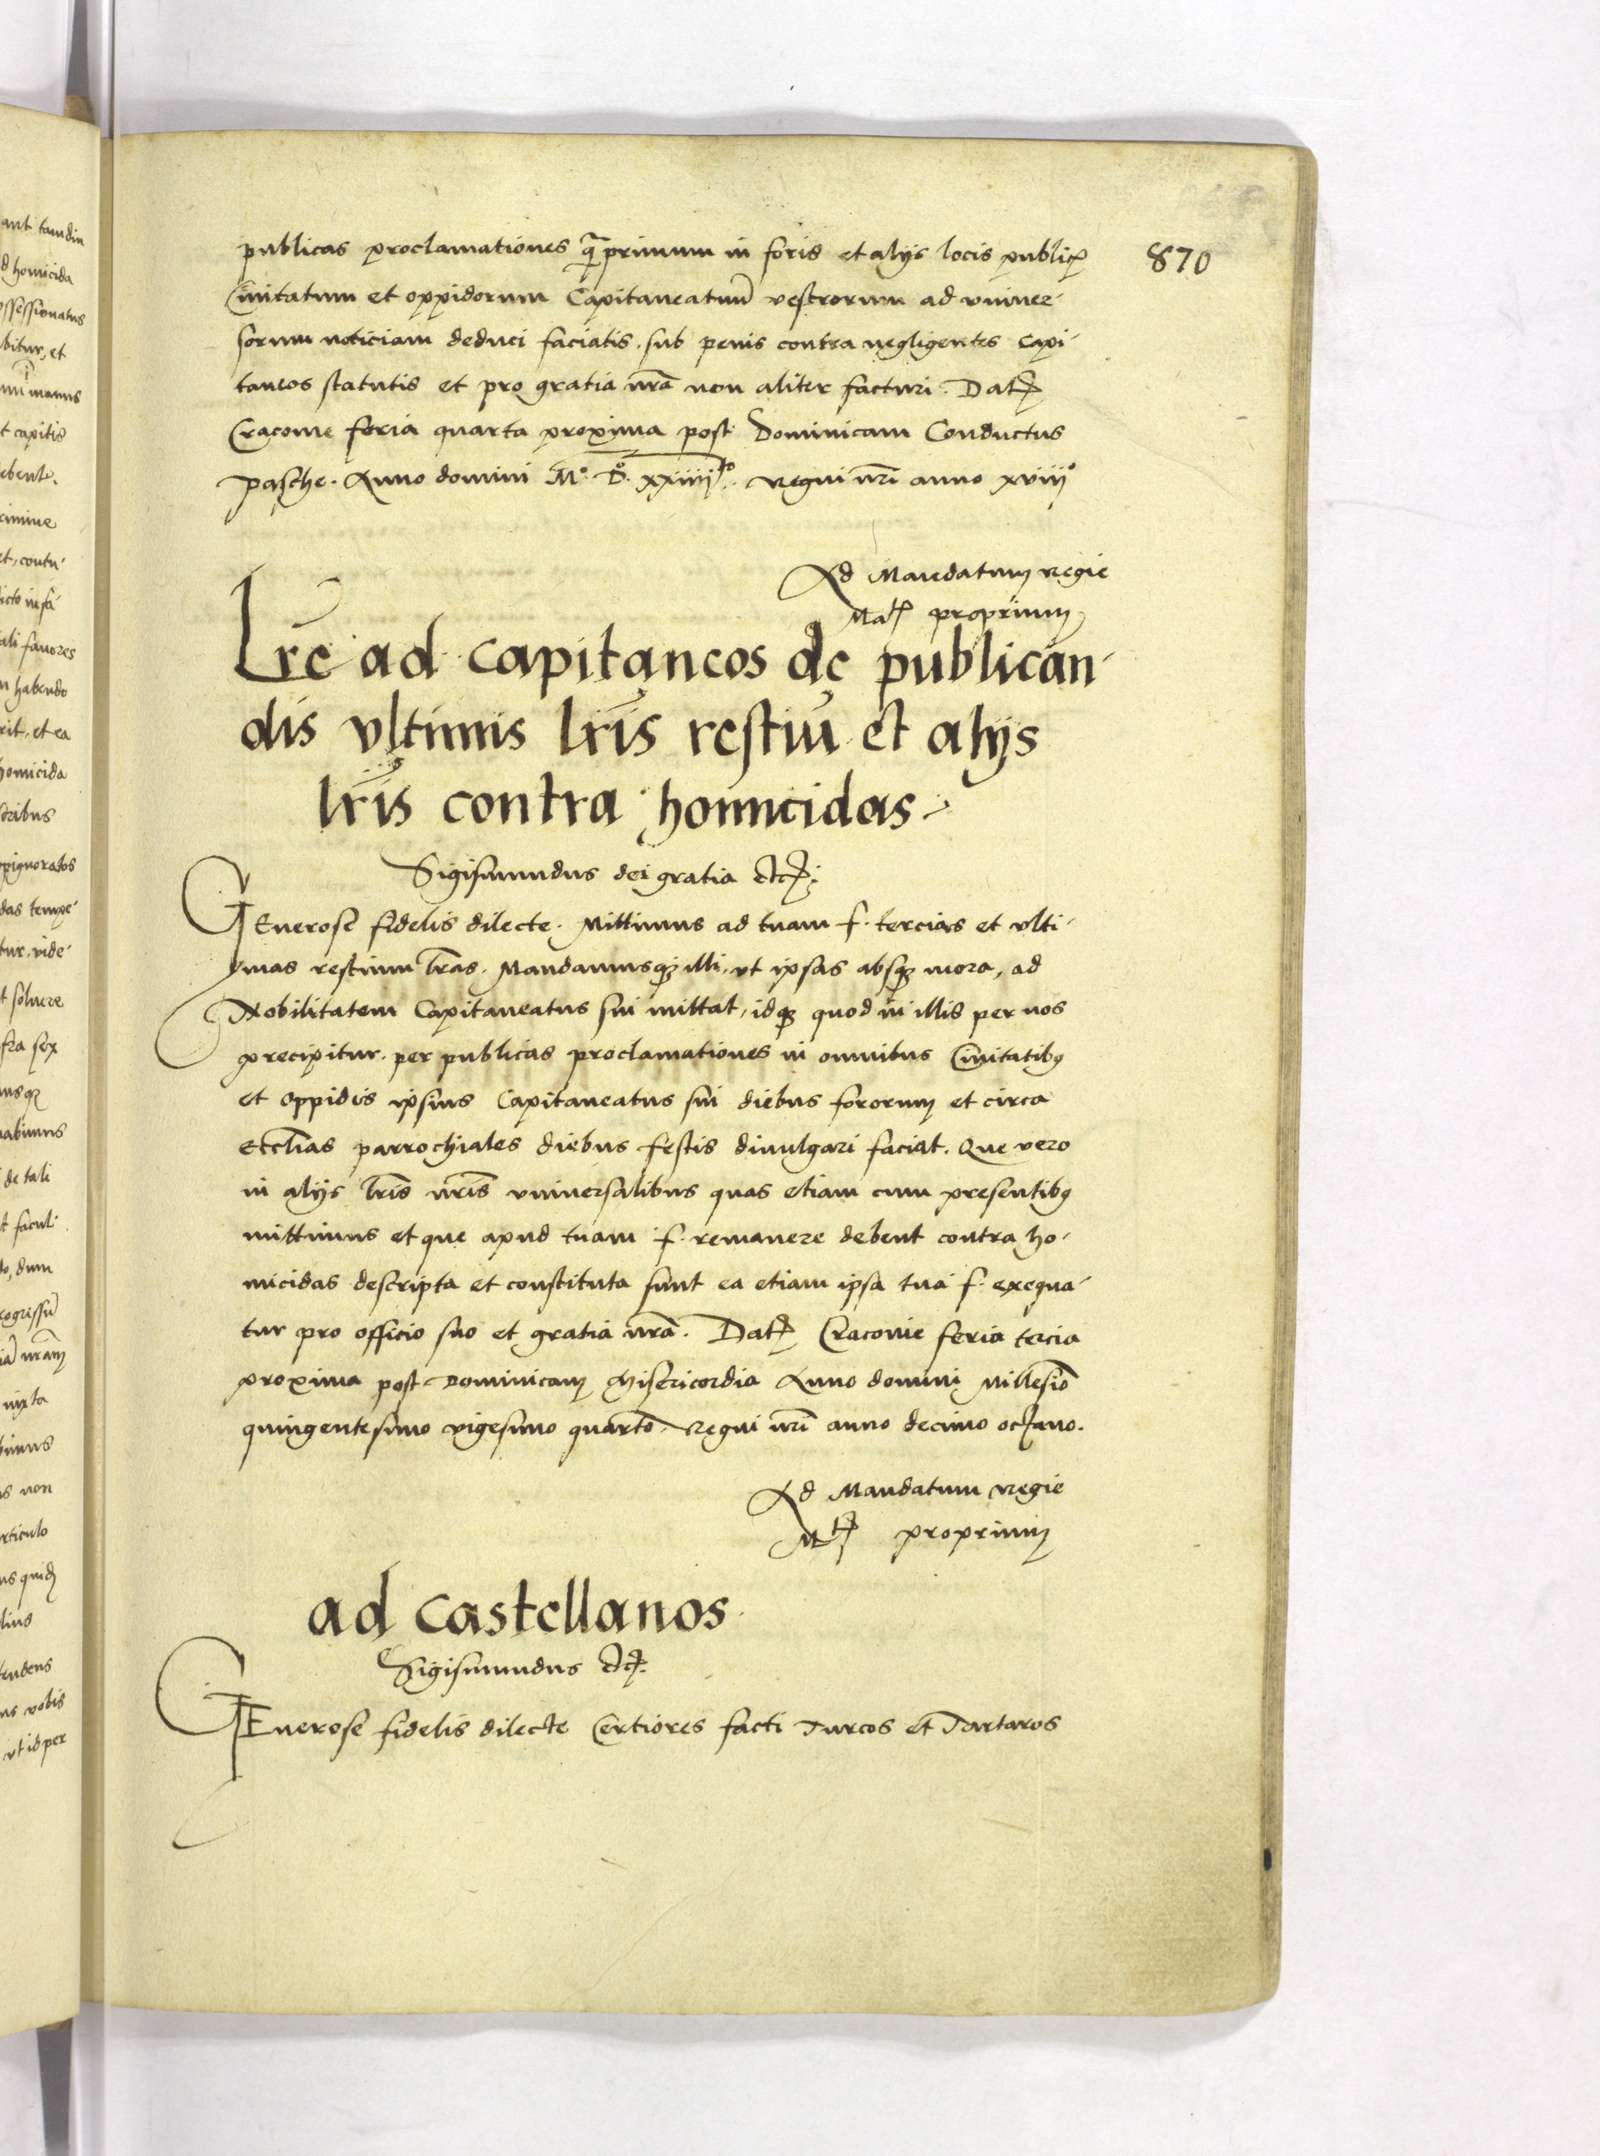 publicas proclamationes qua primum in foris et alijs locis public
Ciuitatum et oppidorum Capitaneatuu vestrorum ad vniuer-
sorum noticiam deduci faciatis. sub penis contra negligentes Capi-
taneos statutis et pro gratia nra non aliter facturi. Dat
Cracouie feria quarta proxima post Dominicam Conductus
pasche. Anno domini Mo. Do. xxiiiito. regni nri anno xviiio
870
Ad Mandatum regie
Mat proprium
Lre ad capitaneos de publican-
dis vltimis lris restiu et alijs
lris contra homicidas.
Sigismundus dei gratia etc.
GEnerose fidelis dilecte. Mittimus ad tuam f. tercias et vlti-
mas restium lras. Mandamusq illi, vt ipsas absq mora, ad
Nobilitatem Capitaneatus sui mittat, idq quod in illis per nos
precipitur. per publicas proclamationes in omnibus Ciuitatibq
et oppidis ipsius Capitaneatus sui diebus fororum et circa
Ecclias parrochiales diebus festis diuulgari faciat. Que vero
in alijs lris nris vniuersalibus quas etiam cum presentibq
mittimus et que apud tuam f. remanere debent contra ho-
micidas descripta et constituta sunt ea etiam ipsa tua f. exequa-
tur pro officio suo et gratia nra. Dat Cracouie feria tercia
proxima post Dominicam Misericordia Anno domini Millesio
quingentesimo vigesimo quarto. Regni nri anno decimo octauo.
Ad Mandatum regie
Mt proprium
ad castellanos
Sigismundus etc.
GEnerose fidelis dilecte Certiores facti Turcos et Tartaros